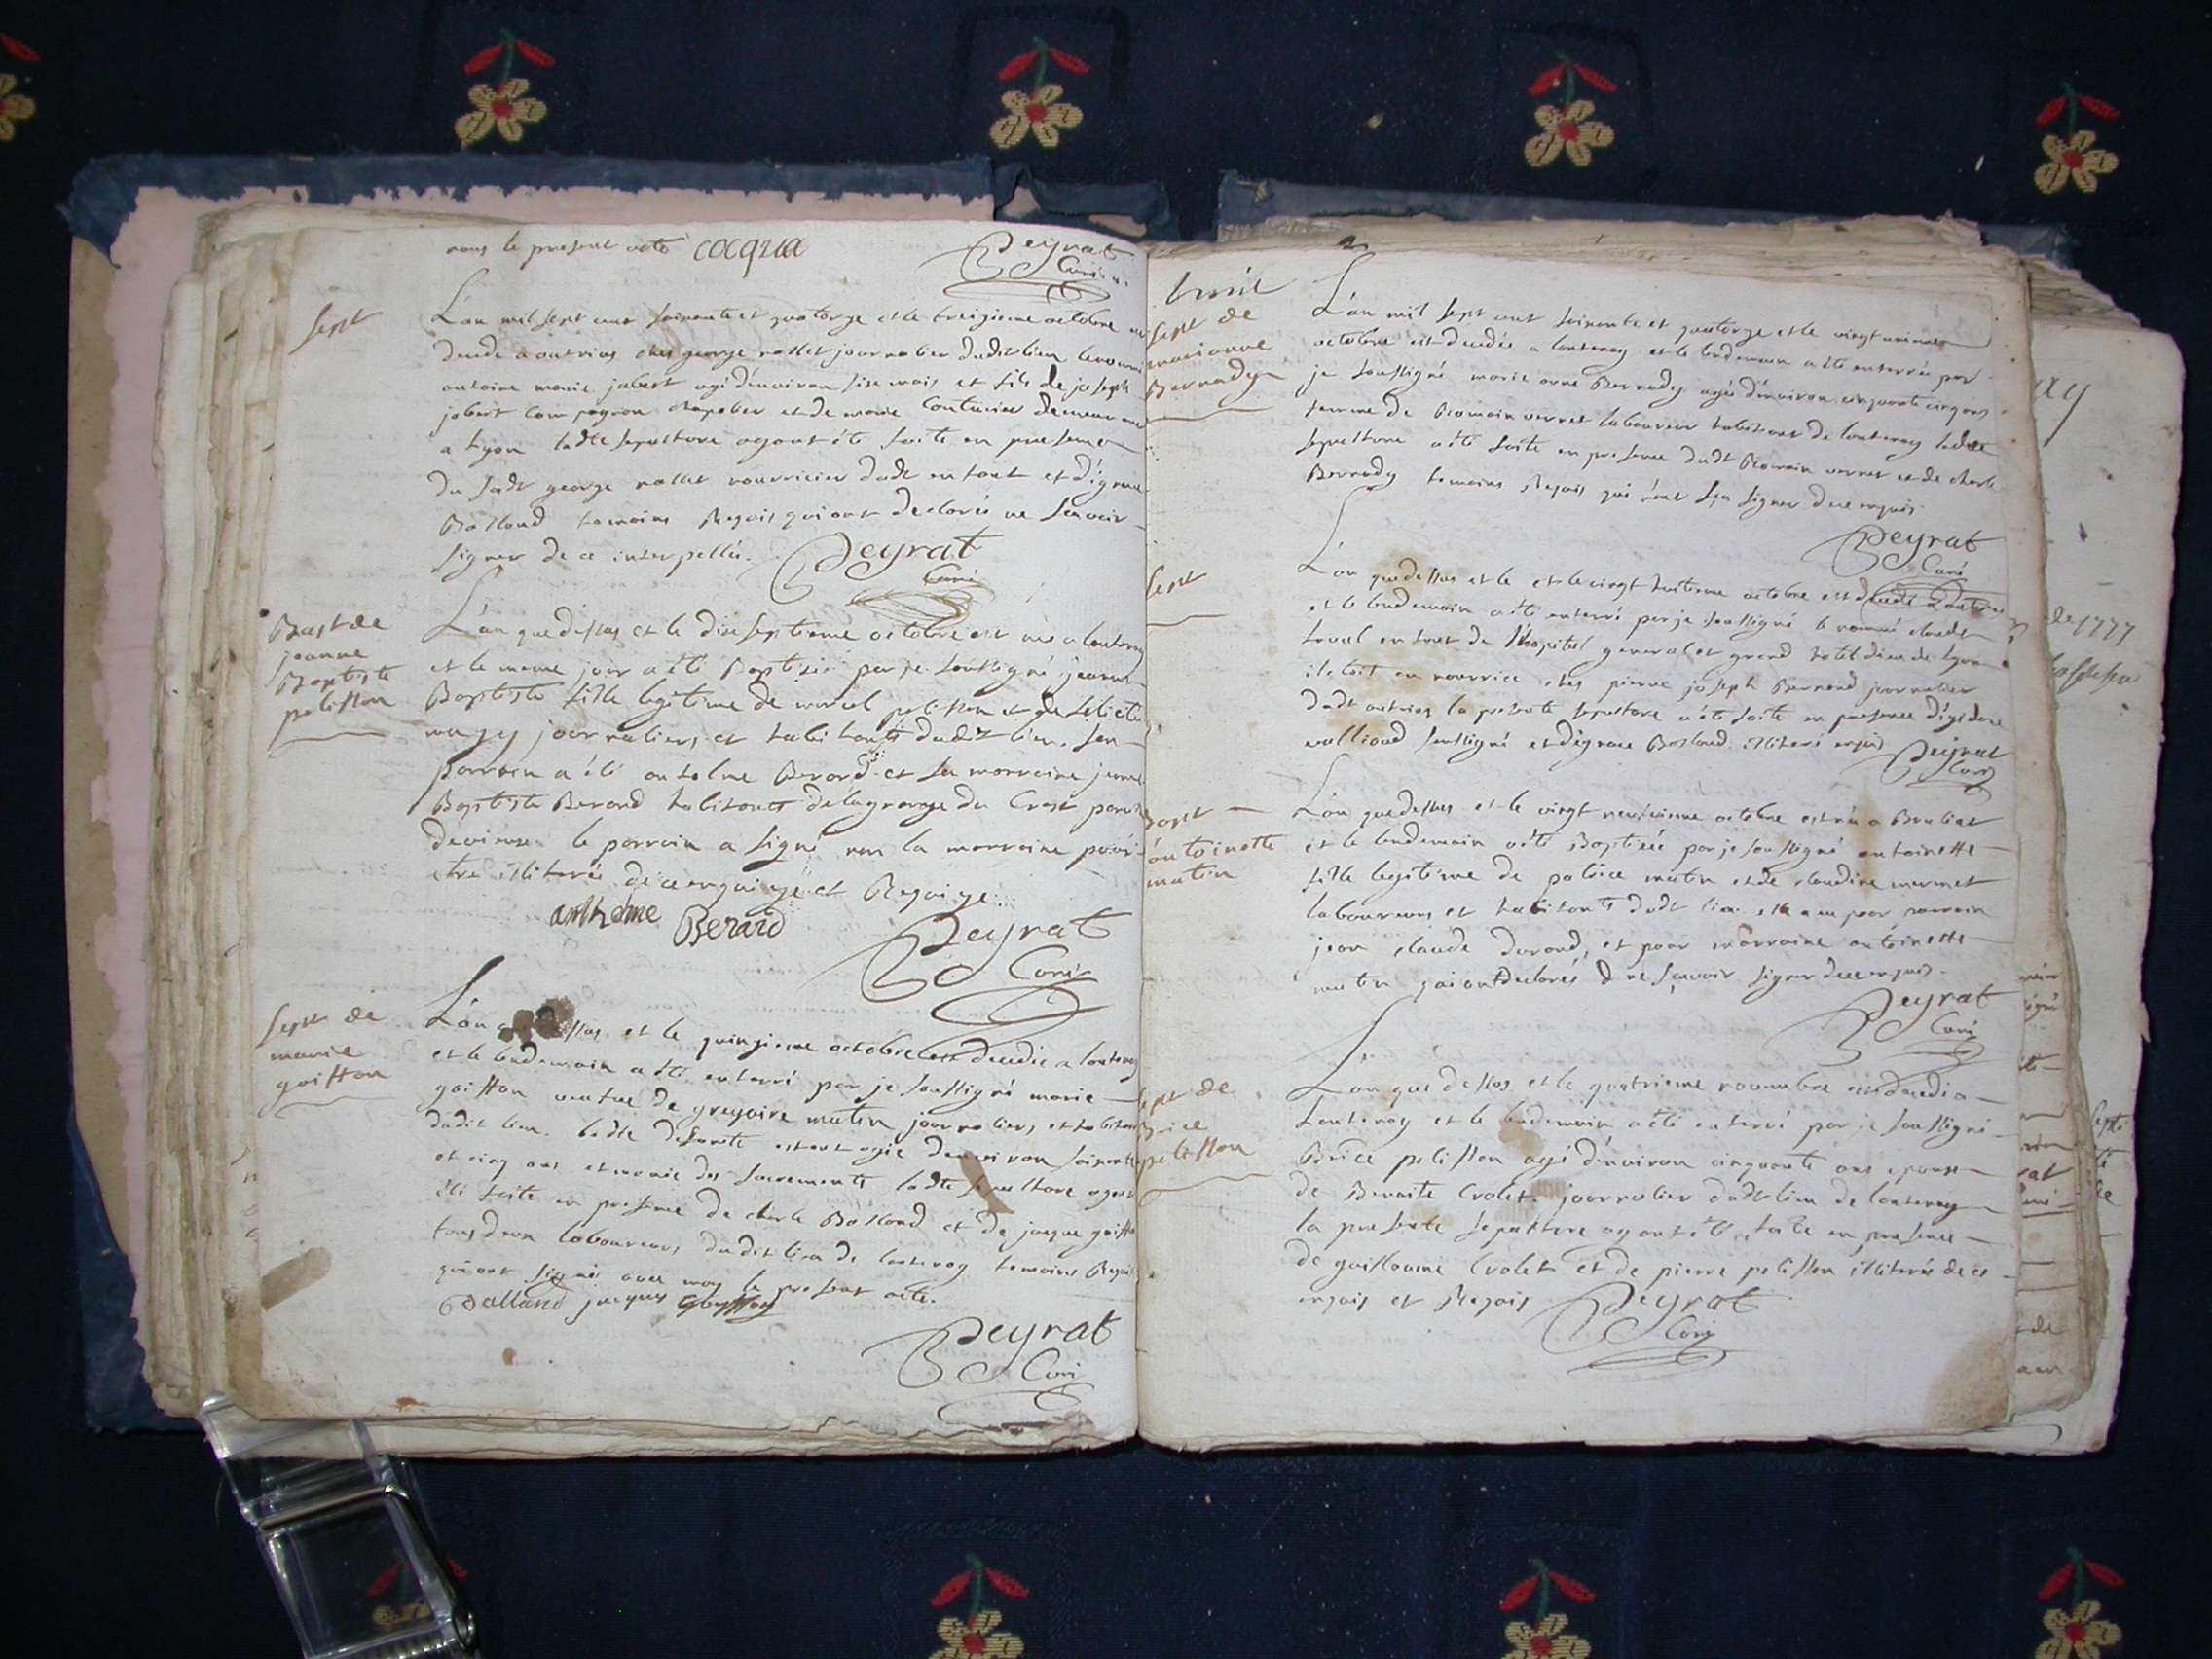 nous le present acte cocqua
Peyrat
Curé
Sept
L'an mil sept cent soixante et quatorze et le treizieme octobre
decede a outriaz ches george rollet journalier dudit lieu le nommé
antoine marie jobert agé d'environ sise mois et fils de joseph
jobert compagnon chapelier et de marie couturier demeurant
a Lyon ladte sepulture ayant été faite en presence
du sadt george rollet nourricier dudt enfant et d'
Balland temoins Requis qui ont declarés ne scavoir
signer de ce interpellés. Peyrat
Curé
Bapt de
jeanne
Baptiste
pelisson
L'an que dessus et le dix septieme octobre est née a lantenay
et le meme jour a été Baptisée par je soussigné jeanne
Baptiste fille legitime de marcel pelisson et de
journaliers et habitants dudit lieu. son
parrain a été antelme Berard et sa marraine jeanne
Baptiste Berard habitants de la grange du Crest paroisse
de vieux le parrain a signé non la marraine pour
etre illiterée de ce enquise et Requise.
anthelme Berard
Peyrat
Curé
Sept de
marie
goisson
L'an que dessus et le quinzieme octobre est decedée a lantenay
et le lendemain a été enterré par je soussigné marie
goisson veufue de gregoire mutin journaliers et habitant
dudit lieu. ladte defunte estant agée d'environ soixante
et cinq ans et munie des sacrements ladte sepulture ayant
été faite en presence de charle Balland et de jacque goisson
tous deux laboureurs dudit lieu de lantenay temoins Requis
qui ont signé avec moy le present acte.
Balland jacques goysson
Peyrat
Curé
huit
Sept de
marianne
Bernady
L'an mil sept cent soixante et quatorze et le vingt unieme
octobre est decedée a lantenay et le lendemain a été enterrée par
je soussigné marie anne Bernady agée d'environ cinquante cinq ans
femme de Romain vernet laboureur habitant de lantenay ladte
sepulture a été faite en presence dudt Romain vernet et de charle
Bernady temoins Requis qui n'ont sçu signer de ce enquis
Peyrat
Curé
Sept
L'an que dessus et le et le vingt huitieme octobre est decedé a outriaz
et le lendemain a été enterré par je soussigné le nommé claude
enfant de l'hopital general et grand hotel dieu de Lyon
il etoit en nourrice ches pierre joseph Bernand journalier
dudt outriaz la presente sepulture a été faite en presence d'
soussigné et d' Balland illiteré enquis Peyrat
Curé
Bapt
antoinette
mutin
L'an que dessus et le vingt neuvieme octobre est née a Brenliat
et le lendemain a été Baptisée par je soussigné antoinette
fille legitime de patrice mutin et de claudine mermet
laboureurs et habitants dudt lieu elle a eu pour parrain
jean claude durand, et pour marraine antoinette
mutin qui ont declarés ne sçavoir signer de ce enquis.
Peyrat
Curé
Sept de
Brice
pelisson
L'an que dessus et le quatrieme novembre est decedé a
Lantenay et le lendemain a été enterré par je soussigné
Brice pelisson agé d'environ cinquante ans epoux
de Benoite Crolet journalier dudt lieu de lantenay
la presente sepulture ayant été faite en presence
de guillaume Crolet et de pierre pelisson illiterés de ce
enquis et Requis Peyrat
Curé
ay
de 1777